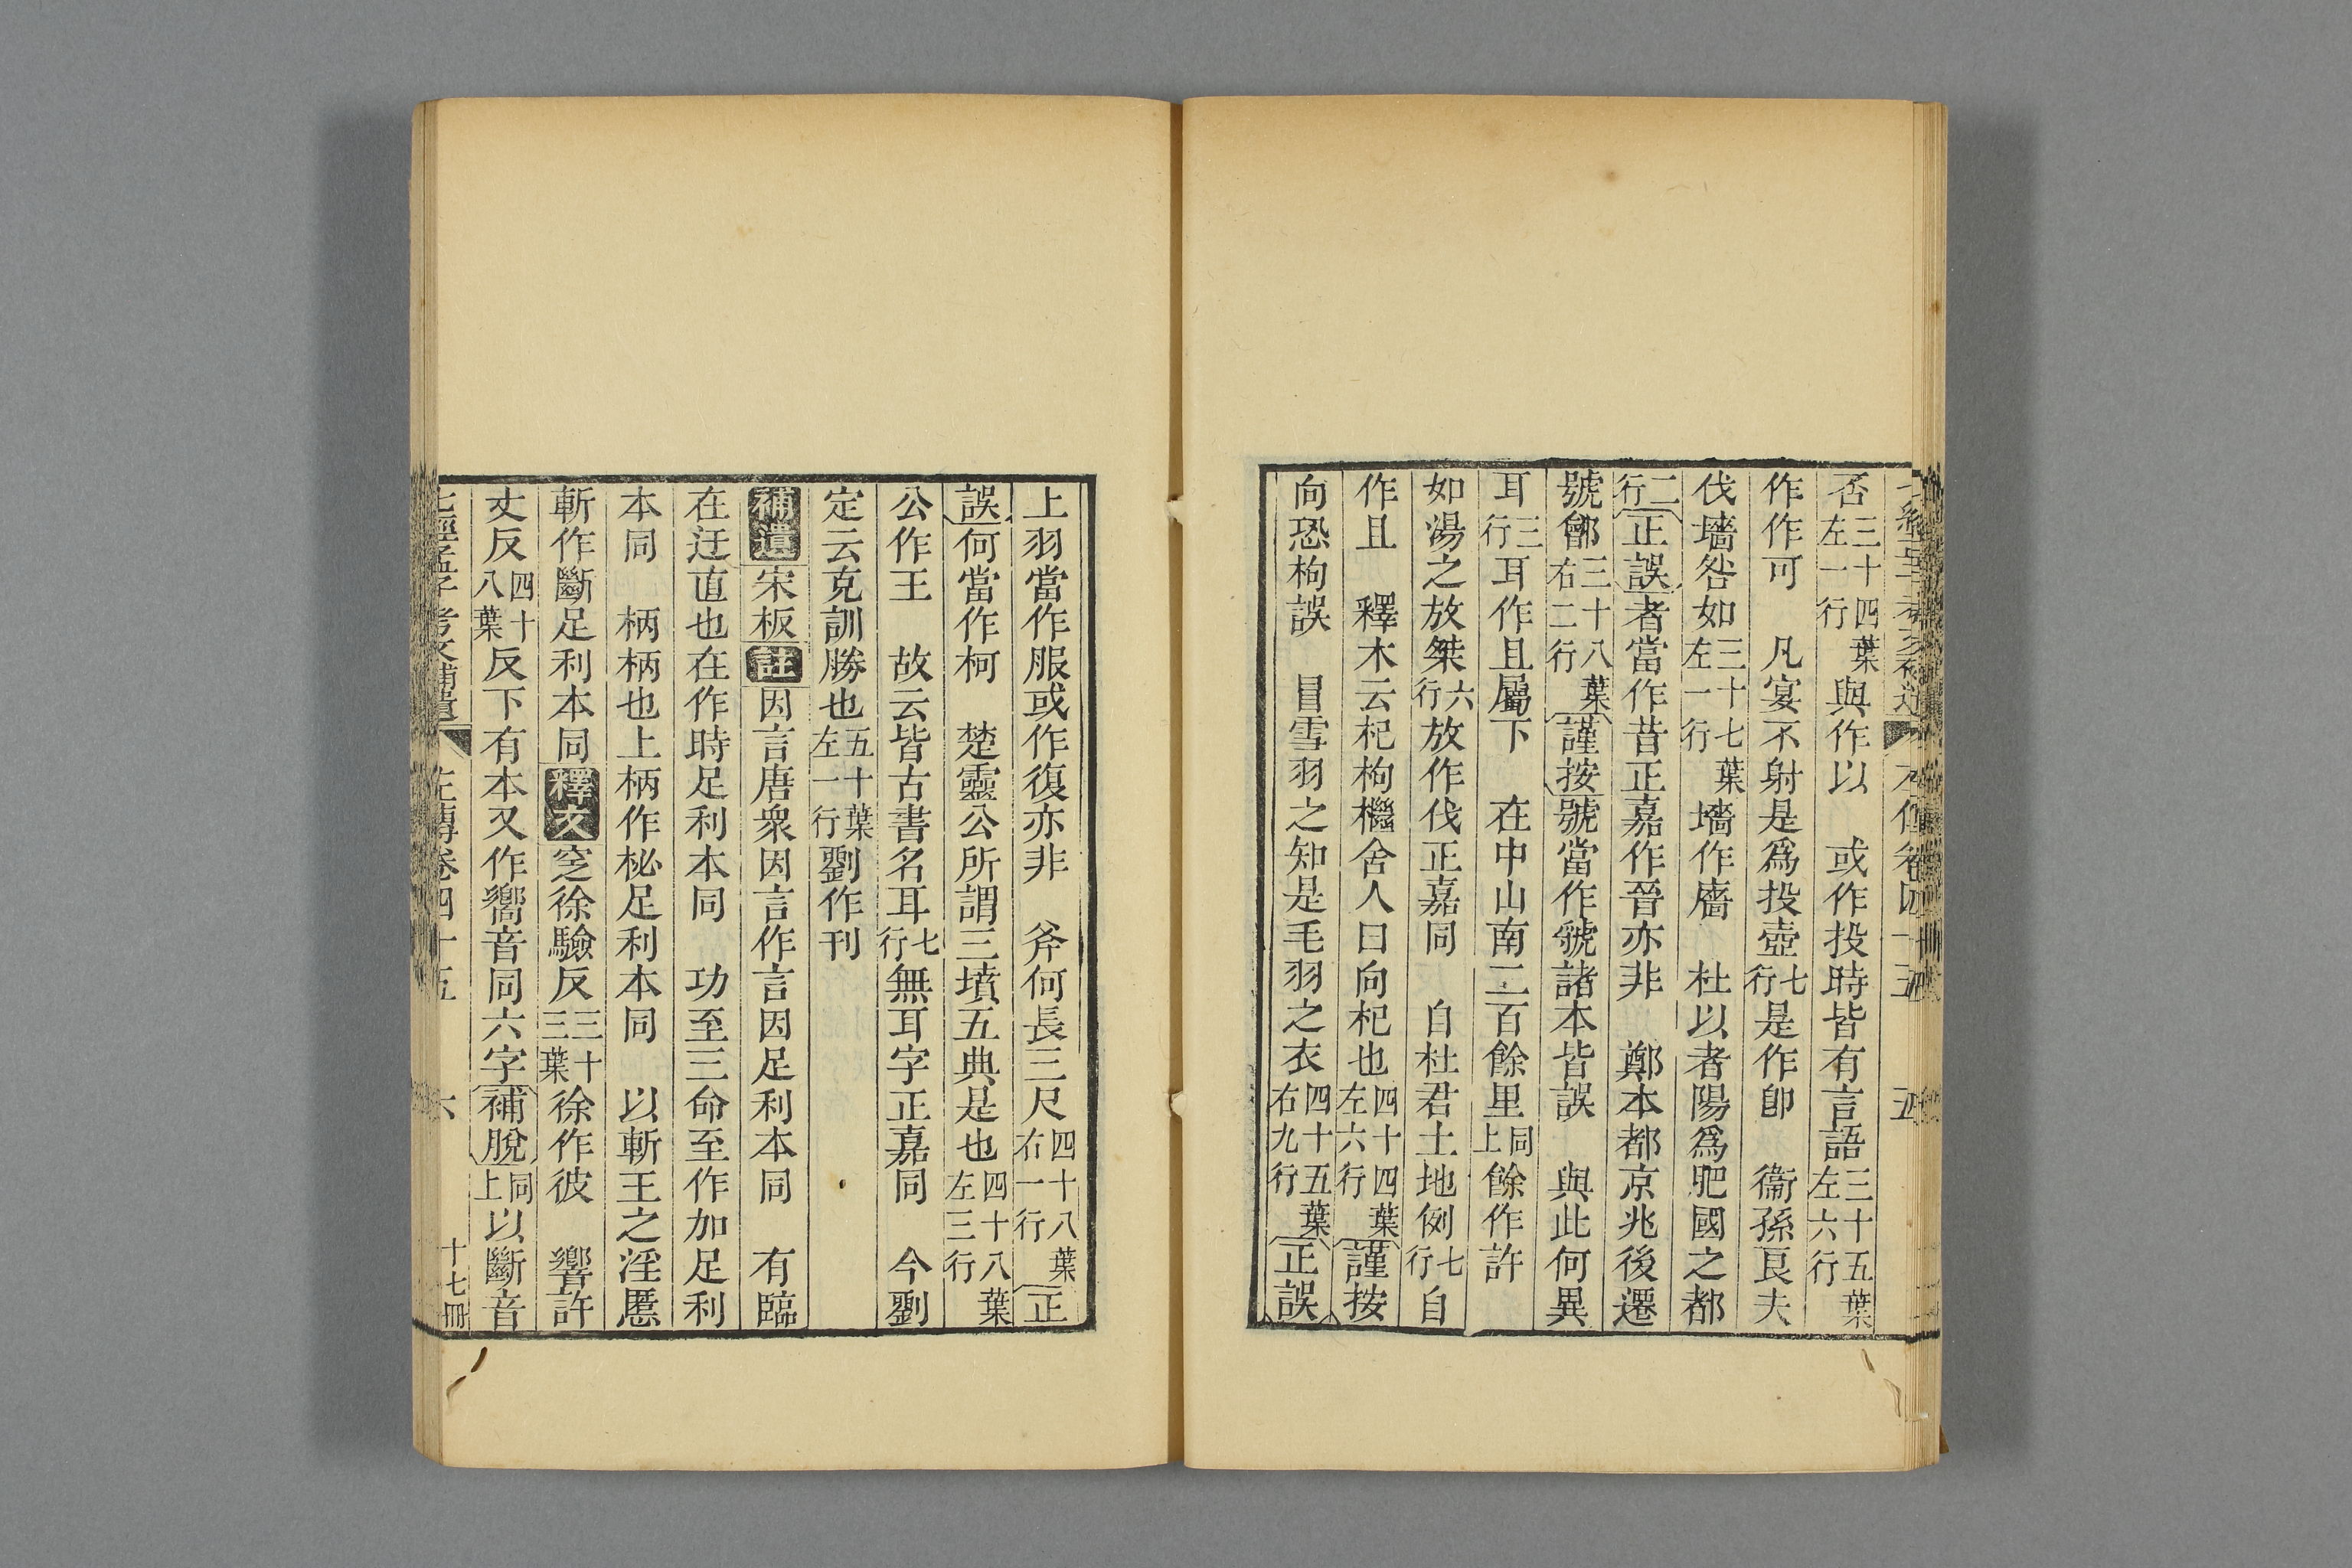 否三十四葉左一行與作以　或作投時皆有言語三十五葉左六行
作作可　凡宴不射是爲投壺七行是作卽　衞孫良夫
伐墻咎如三十七葉左一行墻作廧　杜以者陽爲肥國之都
二行正誤者當作昔正嘉作晉亦非　鄭本都京兆後遷
號鄶三十八葉右二行謹按號當作虢諸本皆誤　與此何異
耳三行耳作且屬下　在中山南二百餘里同上餘作許
如湯之放桀六行放作伐正嘉同　自杜君土地例七行自
作且　釋木云杞枸檵舍人曰向杞也四十四葉左六行謹按
向恐枸誤　冒雪羽之知是毛羽之衣四十五葉右九行正誤
上羽當作服或作復亦非　斧何長三尺四十八葉右一行正
誤何當作柯　楚靈公所謂三墳五典是也四十八葉左三行
公作王　故云皆古書名耳七行無耳字正嘉同　今劉
定云克訓勝也五十葉左一行劉作刊
補遺宋板註因言唐衆因言作言因足利本同　有臨
在迋直也在作時足利本同　功至三命至作加足利
本同　柄柄也上柄作柲足利本同　以斬王之淫慝
斬作斷足利本同釋文窆徐驗反三十三葉徐作彼　響許
丈反四十八葉反下有本又作嚮音同六字補脫同上以斷音
七經孟子考文補遺　左傳卷四十五　六　十七冊